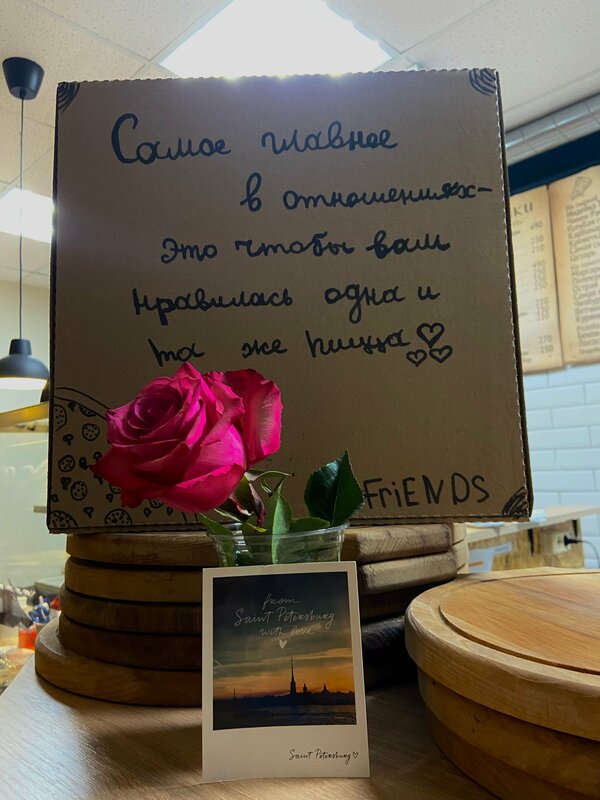 Самое главное
в отношениях-
Это чтобы вам
нравилась одна и
та же пицца
FRiENDS
from
Saint Petersburg
with love
Saint Petersburg